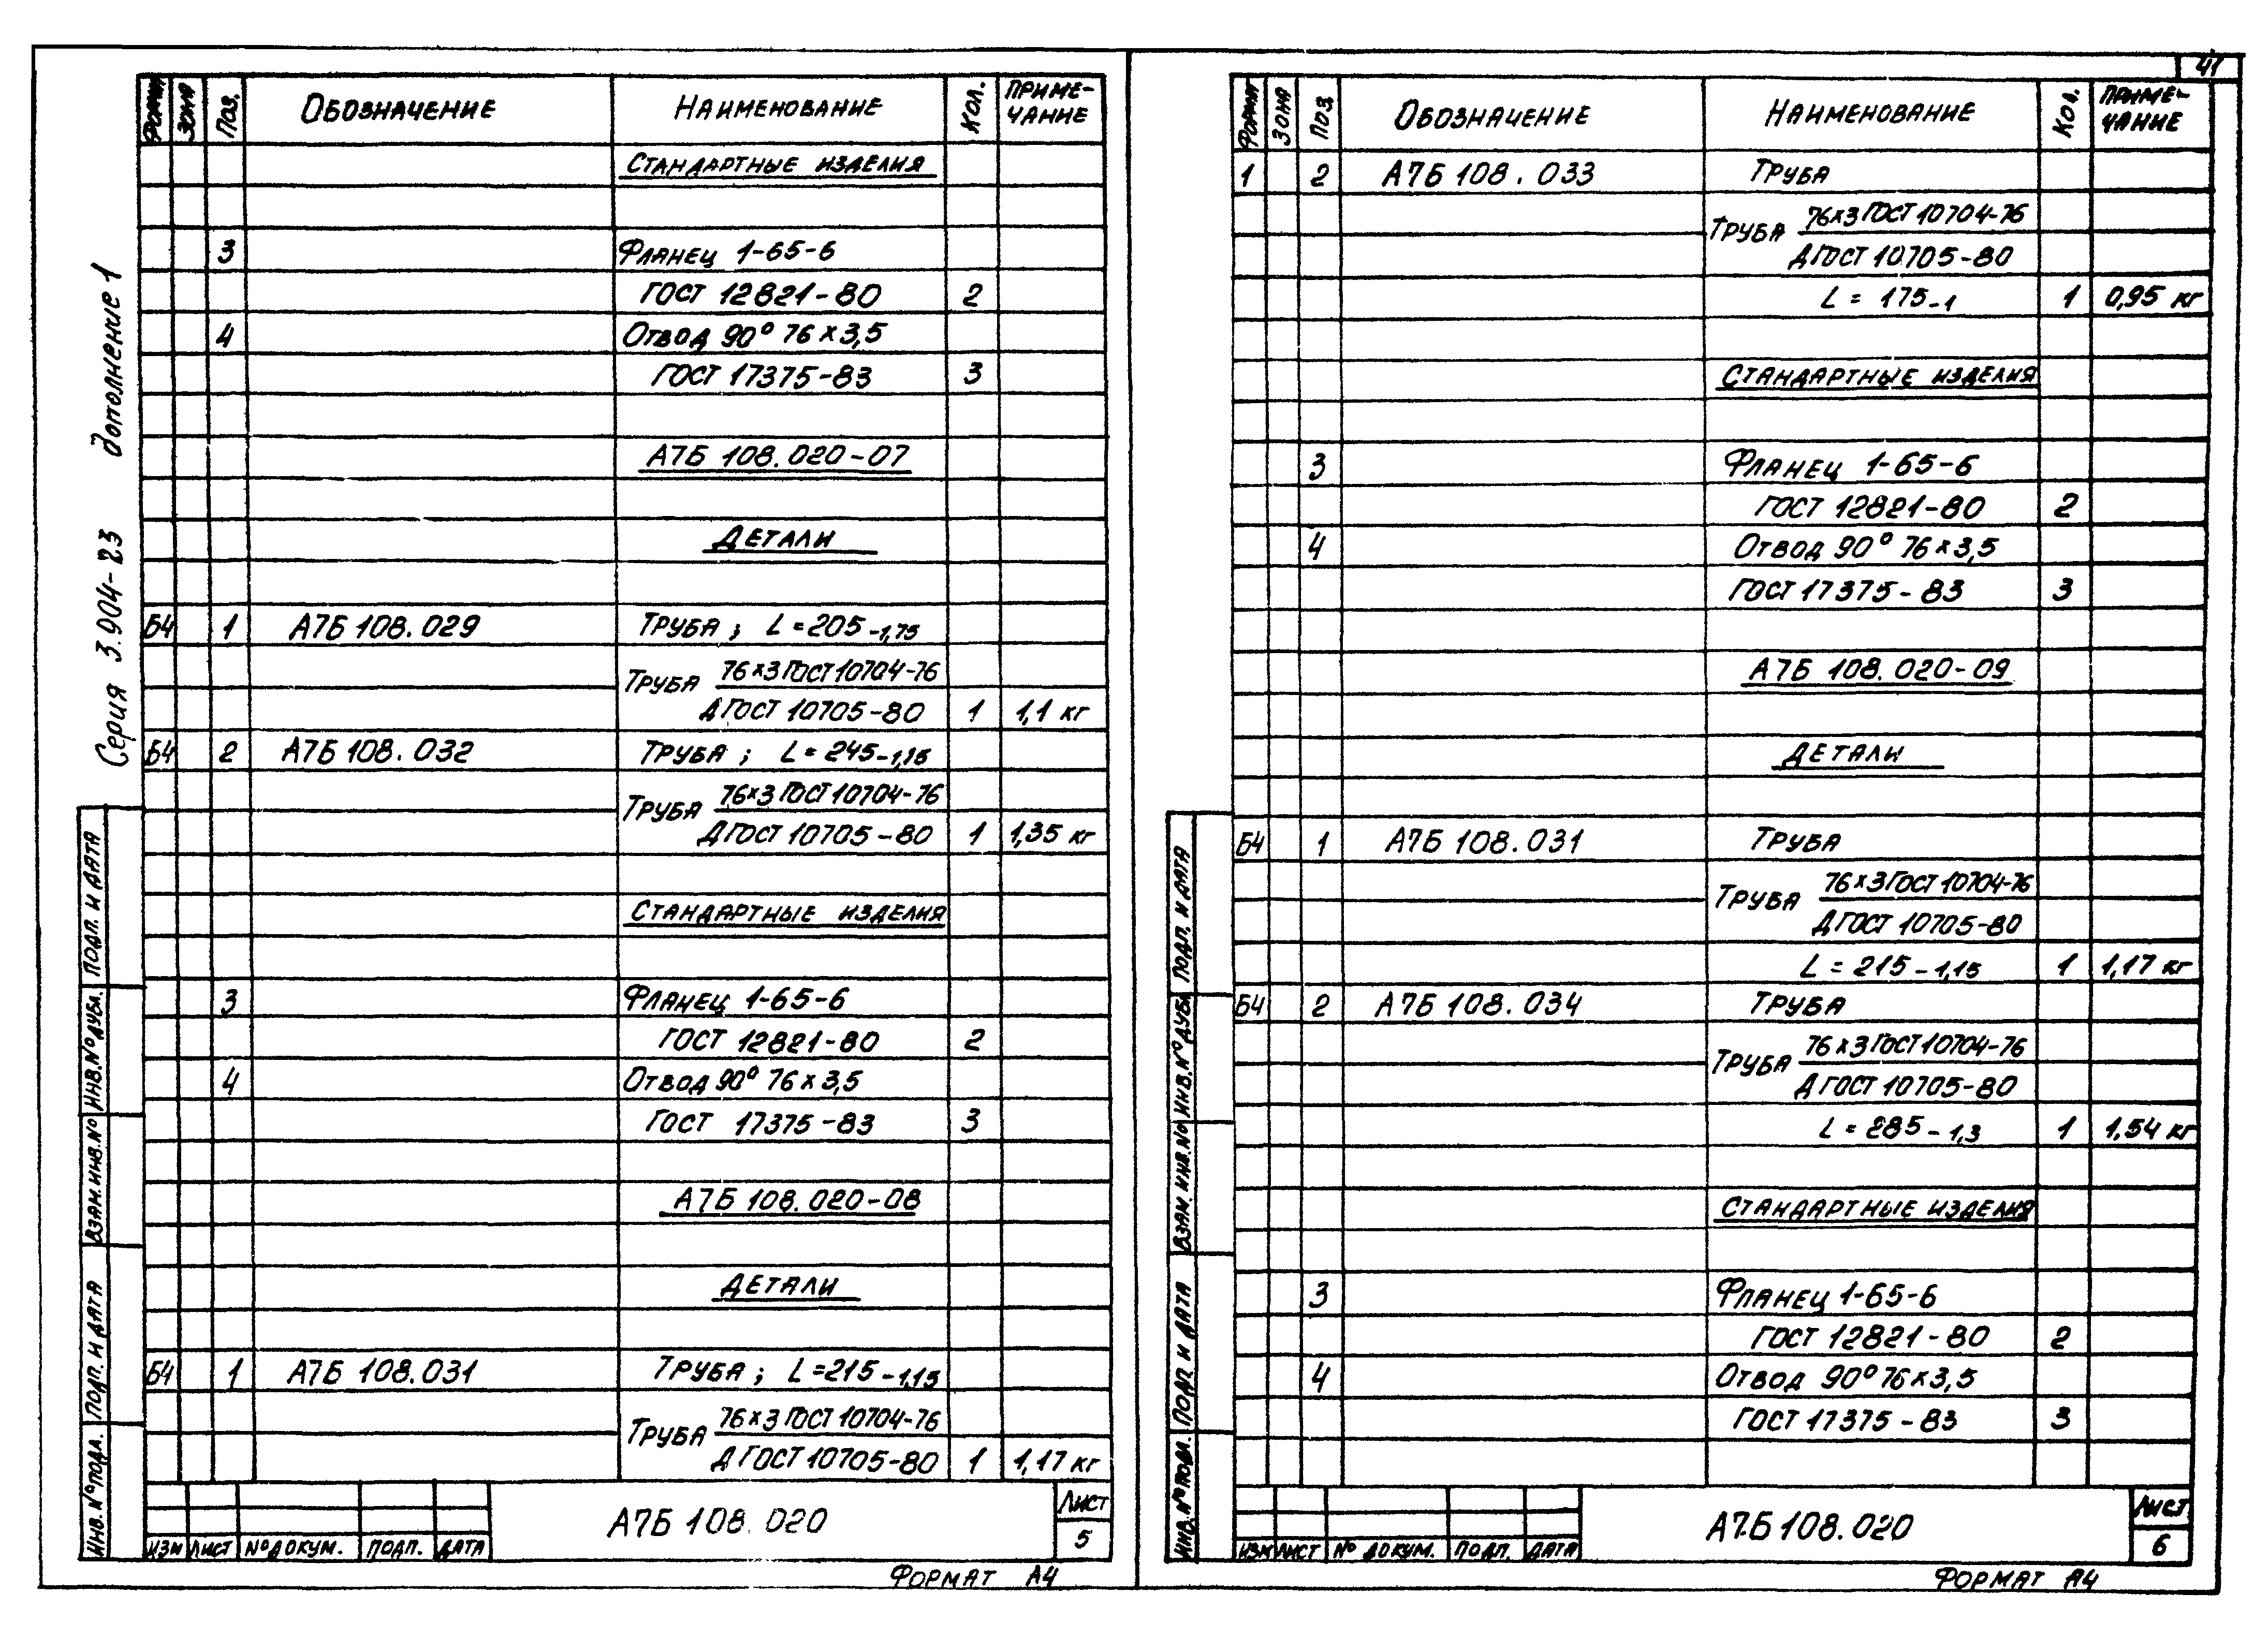 Серия 3.904-23 дополнение 1
Формат Зона Поз. Обозначение Наименование Кол. Приме-
чание
Стандартные изделия
3 Фланец 1-65-6
ГОСТ 12821-80 2
4 Отвод 90° 76×3,5
ГОСТ 17375-83 3
А7Б 108.020-07
Детали
Б4 1 А7Б 108.029 Труба; L=205-1,75
76×3 ГОСТ 10704-76
Труба
Д ГОСТ 10705-80 1 1,1 кг
Б4 2 А7Б 108.032 Труба; L=245-1,15
76×3 ГОСТ 10704-76
Труба
Д ГОСТ 10705-80 1 1,35 кг
Стандартные изделия
3 Фланец 1-65-6
ГОСТ 12821-80 2
4 Отвод 90° 76×3,5
ГОСТ 17375-83 3
А7Б 108.020-08
Детали
Б4 1 А7Б 108.031 Труба; L=215-1,15
76×3 ГОСТ 10704-76
Труба
Д ГОСТ 10705-80 1 1,17 кг
Инв.№подл. Подп. и дата Взам.инв.№ Инв.№дубл. Подп. и дата
Изм Лист №докум. Подп. Дата
А7Б 108.020
Лист
5
Формат А4
41
Формат Зона Поз. Обозначение Наименование Кол. Приме-
чание
1 2 А7Б 108.033 Труба
76×3 ГОСТ 10704-76
Труба
Д ГОСТ 10705-80
L = 175-1 1 0,95 кг
Стандартные изделия
3 Фланец 1-65-6
ГОСТ 12821-80 2
4 Отвод 90° 76×3,5
ГОСТ 17375-83 3
А7Б 108.020-09
Детали
Б4 1 А7Б 108.031 Труба
76×3 ГОСТ 10704-76
Труба
Д ГОСТ 10705-80
L = 215-1,15 1 1,17 кг
Б4 2 А7Б 108.034 Труба
76×3 ГОСТ 10704-76
Труба
Д ГОСТ 10705-80
L = 285-1,3 1 1,54 кг
Стандартные изделия
3 Фланец 1-65-6
ГОСТ 12821-80 2
4 Отвод 90° 76×3,5
ГОСТ 17375-83 3
Инв.№подл. Подп. и дата Взам.инв.№ Инв.№дубл. Подп. и дата
Изм Лист № докум. Подп. Дата
А7Б 108.020
Лист
6
Формат А4